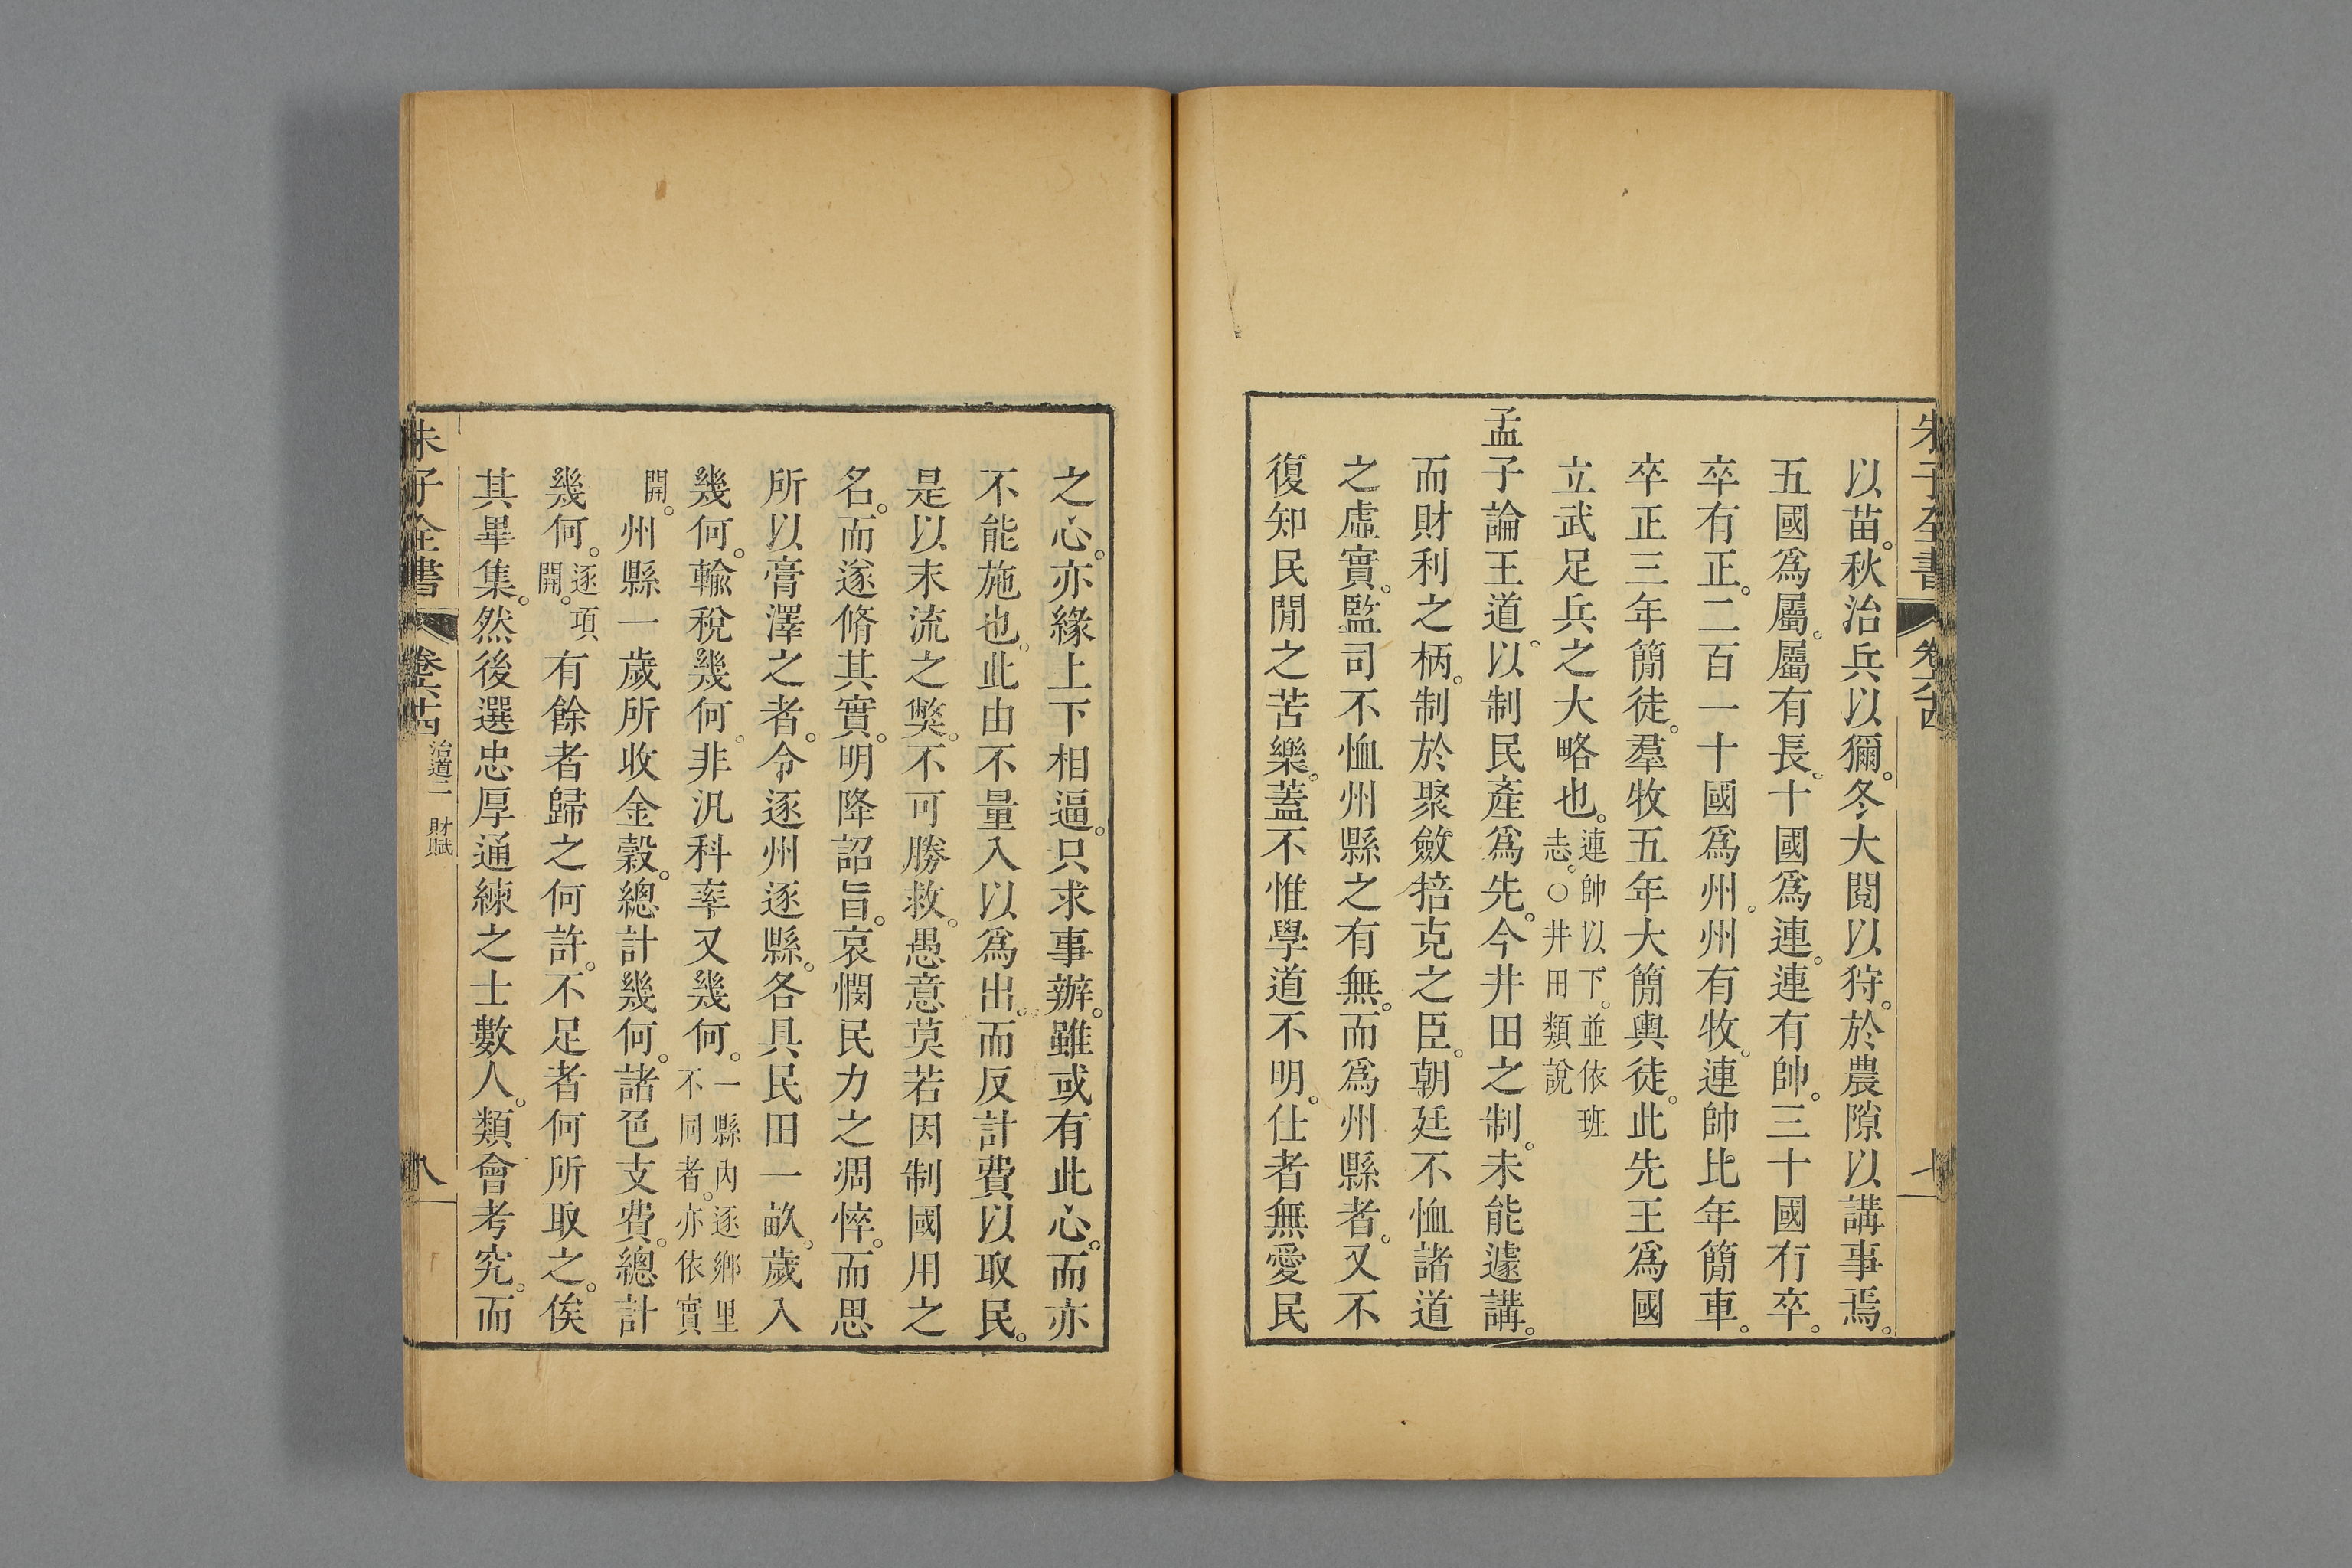 朱子全書 卷六十四 七
以苗。秋治兵以獮。冬大閱以狩。於農隙以講事焉。
五國爲屬。屬有長。十國爲連。連有帥。三十國有卒。
卒有正。二百一十國爲州。州有牧。連帥比年簡車。
卒正三年簡徒。羣牧五年大簡輿徒。此先王爲國
立武足兵之大略也。連帥以下。並依班志。○井田類說
孟子論王道。以制民產爲先。今井田之制。未能遽講。
而財利之柄。制於聚斂掊克之臣。朝廷不恤諸道
之虛實。監司不恤州縣之有無。而爲州縣者。又不
復知民閒之苦樂。蓋不惟學道不明。仕者無愛民
之心。亦緣上下相逼。只求事辦。雖或有此心。而亦
不能施也。此由不量入以爲出。而反計費以取民。
是以末流之獘。不可勝救。愚意莫若因制國用之
名。而遂脩其實。明降詔旨。哀憫民力之凋悴。而思
所以膏澤之者。令逐州逐縣。各具民田一畝。歲入
幾何。輸稅幾何。非汎科率又幾何。一縣內逐鄉里不同者。亦依實
開。州縣一歲所收金穀。總計幾何。諸色支費。總計
幾何。逐項開。有餘者歸之何許。不足者何所取之。俟
其畢集。然後選忠厚通練之士數人。類會考究。而
朱子全書 卷六十四 治道二 財賦 八